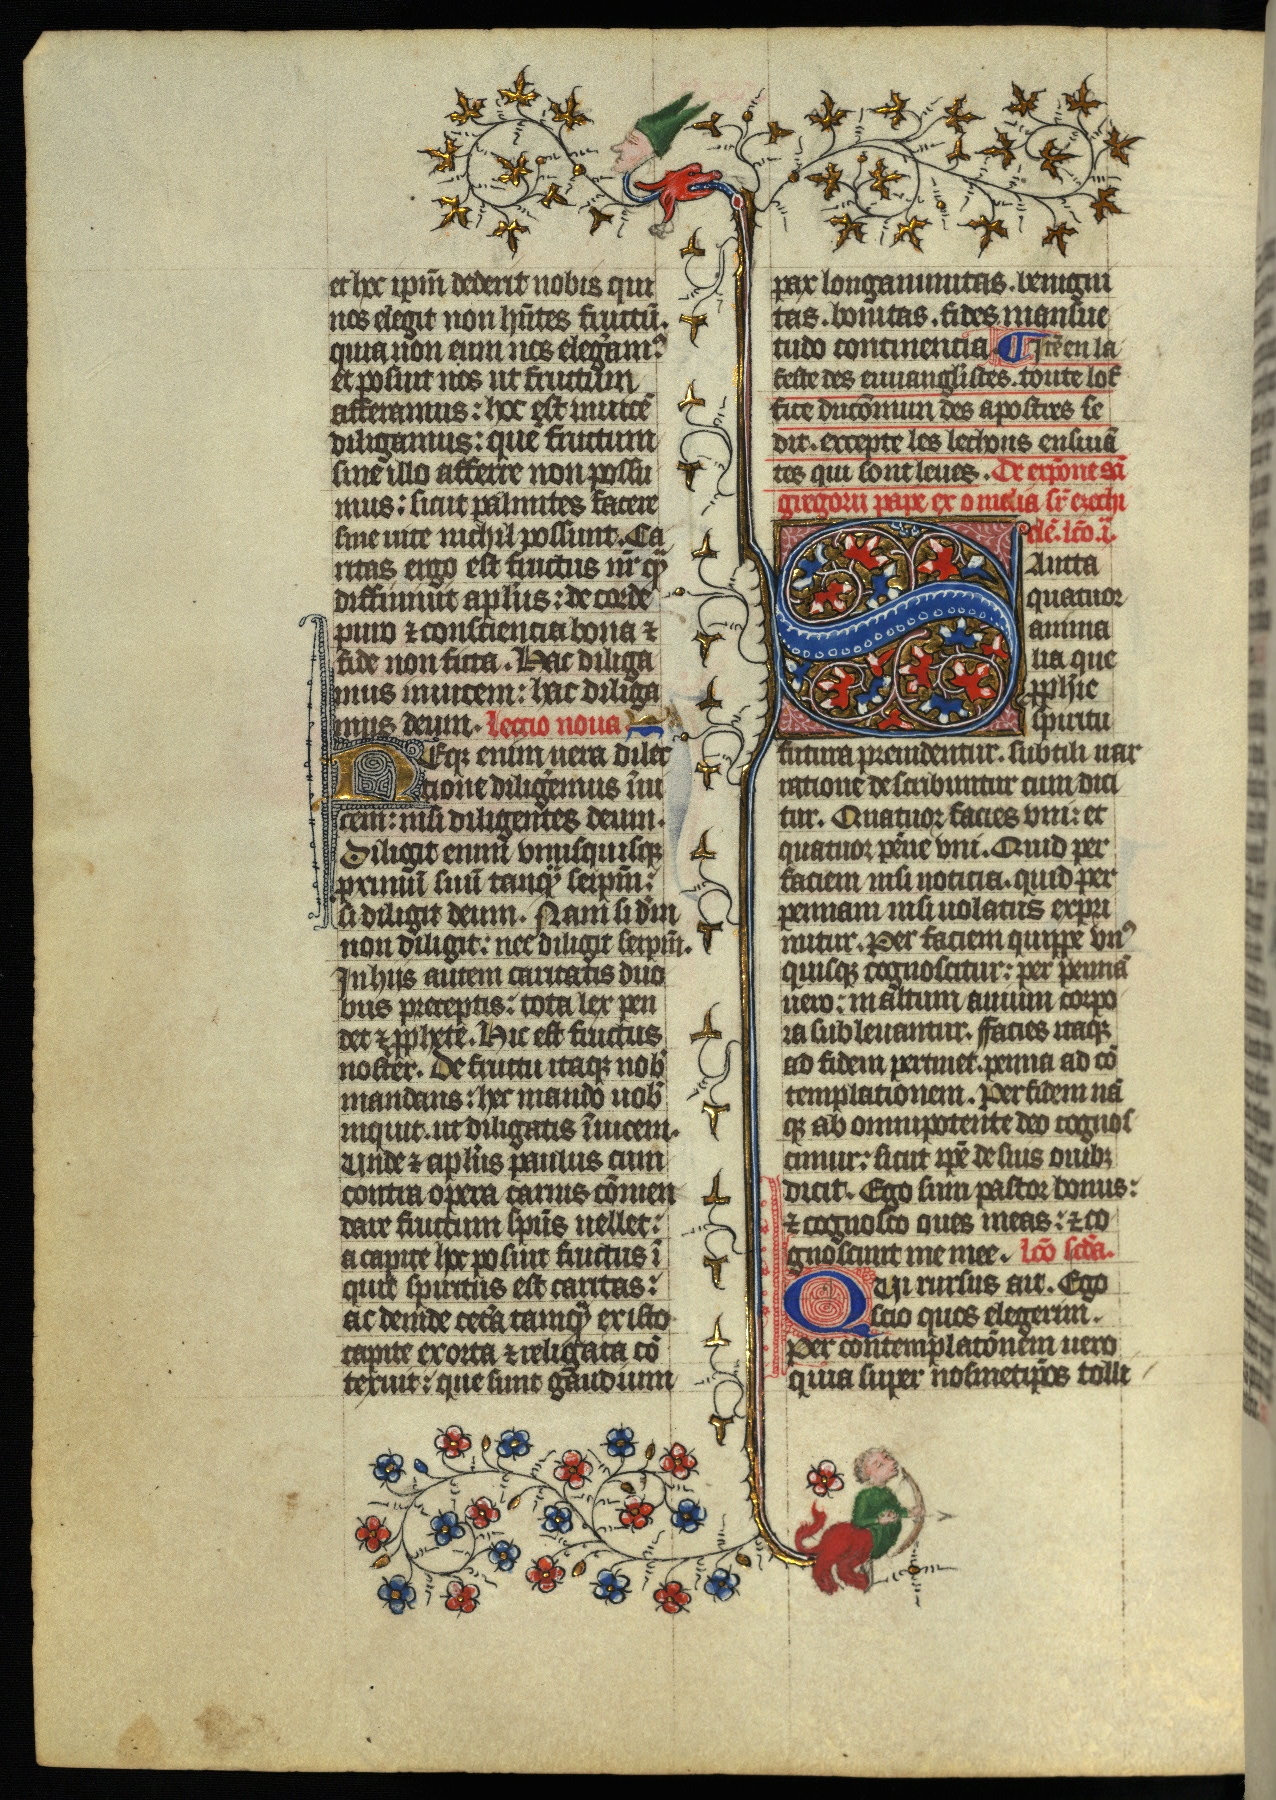 et hoc ipm̄ dederit nobis qui
nos elegit non hn̄tes fructū.
quia non eum nos elegeramꝰ
et posuit nos ut fructum
afferamus: hoc est inuicē
diligamus: quem fructum
sine illo afferre non possu
mus: sicut palmites facere
sine uite nichil possunt. Ca
ritas ergo est fructus nr̄ qm̄
diffinuit apl̄us: de corde
puro ⁊ consciencia bona ⁊
fide non ficta. Hac diliga
mus inuicem: hac diliga
mus deum. leccio nona
Neqꝫ enim uera dilec
tione diligemus īui
cem: nisi diligentes deum.
Diligit enim vnusquisqꝫ
primū suū tanqm̄ seipm̄:
si diligit deum. Nam si dm̄
non diligit: nec diligit seipm̄.
In hiis autem caritatis duo
bus preceptis: tota lex pen
det ⁊ pphete. Hic est fructus
noster. De fructu itaqꝫ nob̄
mandans: hec mando uob̄
inquit. ut diligatis īuicem.
Unde ⁊ apl̄us paulus cum
contra opera carnis cōmen
dare fructum sp̄us uellet:
a capite hoc posuit fructus ī
quit spiritus est caritas:
ac deinde cetera tamqm̄ ex isto
capite exorta ⁊ religata cō
texuit: que sunt gaudium
pax longanimitas. benigni
tas. bonitas. fides mansue
tudo continencia. Itē en la
feste des euuanglistes. toute lof
fice du cōmun des apostres se
dit. excepte les lechons ensiuā
tes qui sont leues. De expōne sā
gregorii pape ex omelia sr̄ ezechi
elē. lcō. i.
Sancta
quatuor
anima
lia que
pphīe
spiritu
futura preuidentur. subtili nar
ratione describuntur cum dici
tur. Quatuor facies vni: et
quatuor pēne vni. Quid per
faciem nisi noticia. quid per
pennam nisi uolatus expri
mitur. Per faciem quippe vnꝰ
quisqꝫ cognoscitur: per pennā
uero: in altum auium corpo
ra subleuantur. Facies itaqꝫ
ad fidem pertinet. penna ad cō
templationem. Per fidem nā
qꝫ ab omnipotente deo cognos
cimur: sicut ipē de suis ouibꝫ
dicit. Ego sum pastor bonus:
⁊ cognosco oues meas: ⁊ co
gnoscunt me mee. lcō scda.
Qui rursus ait. Ego
scio quos elegerim.
Per contemplatōnem uero
quia super nosmetipōs tolli